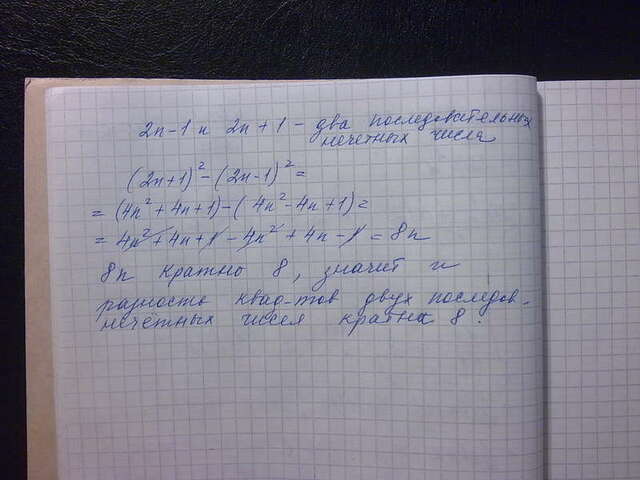 2n-1 и 2n+1 - два последовательных
нечетных числа
(2n+1)² - (2n-1)² =
= (4n² + 4n + 1) - (4n² - 4n + 1) =
= 4n² + 4n + 1 - 4n² + 4n - 1 = 8n
8n кратно 8, значит и
разность квад-тов двух последов-
нечётных чисел кратна 8.